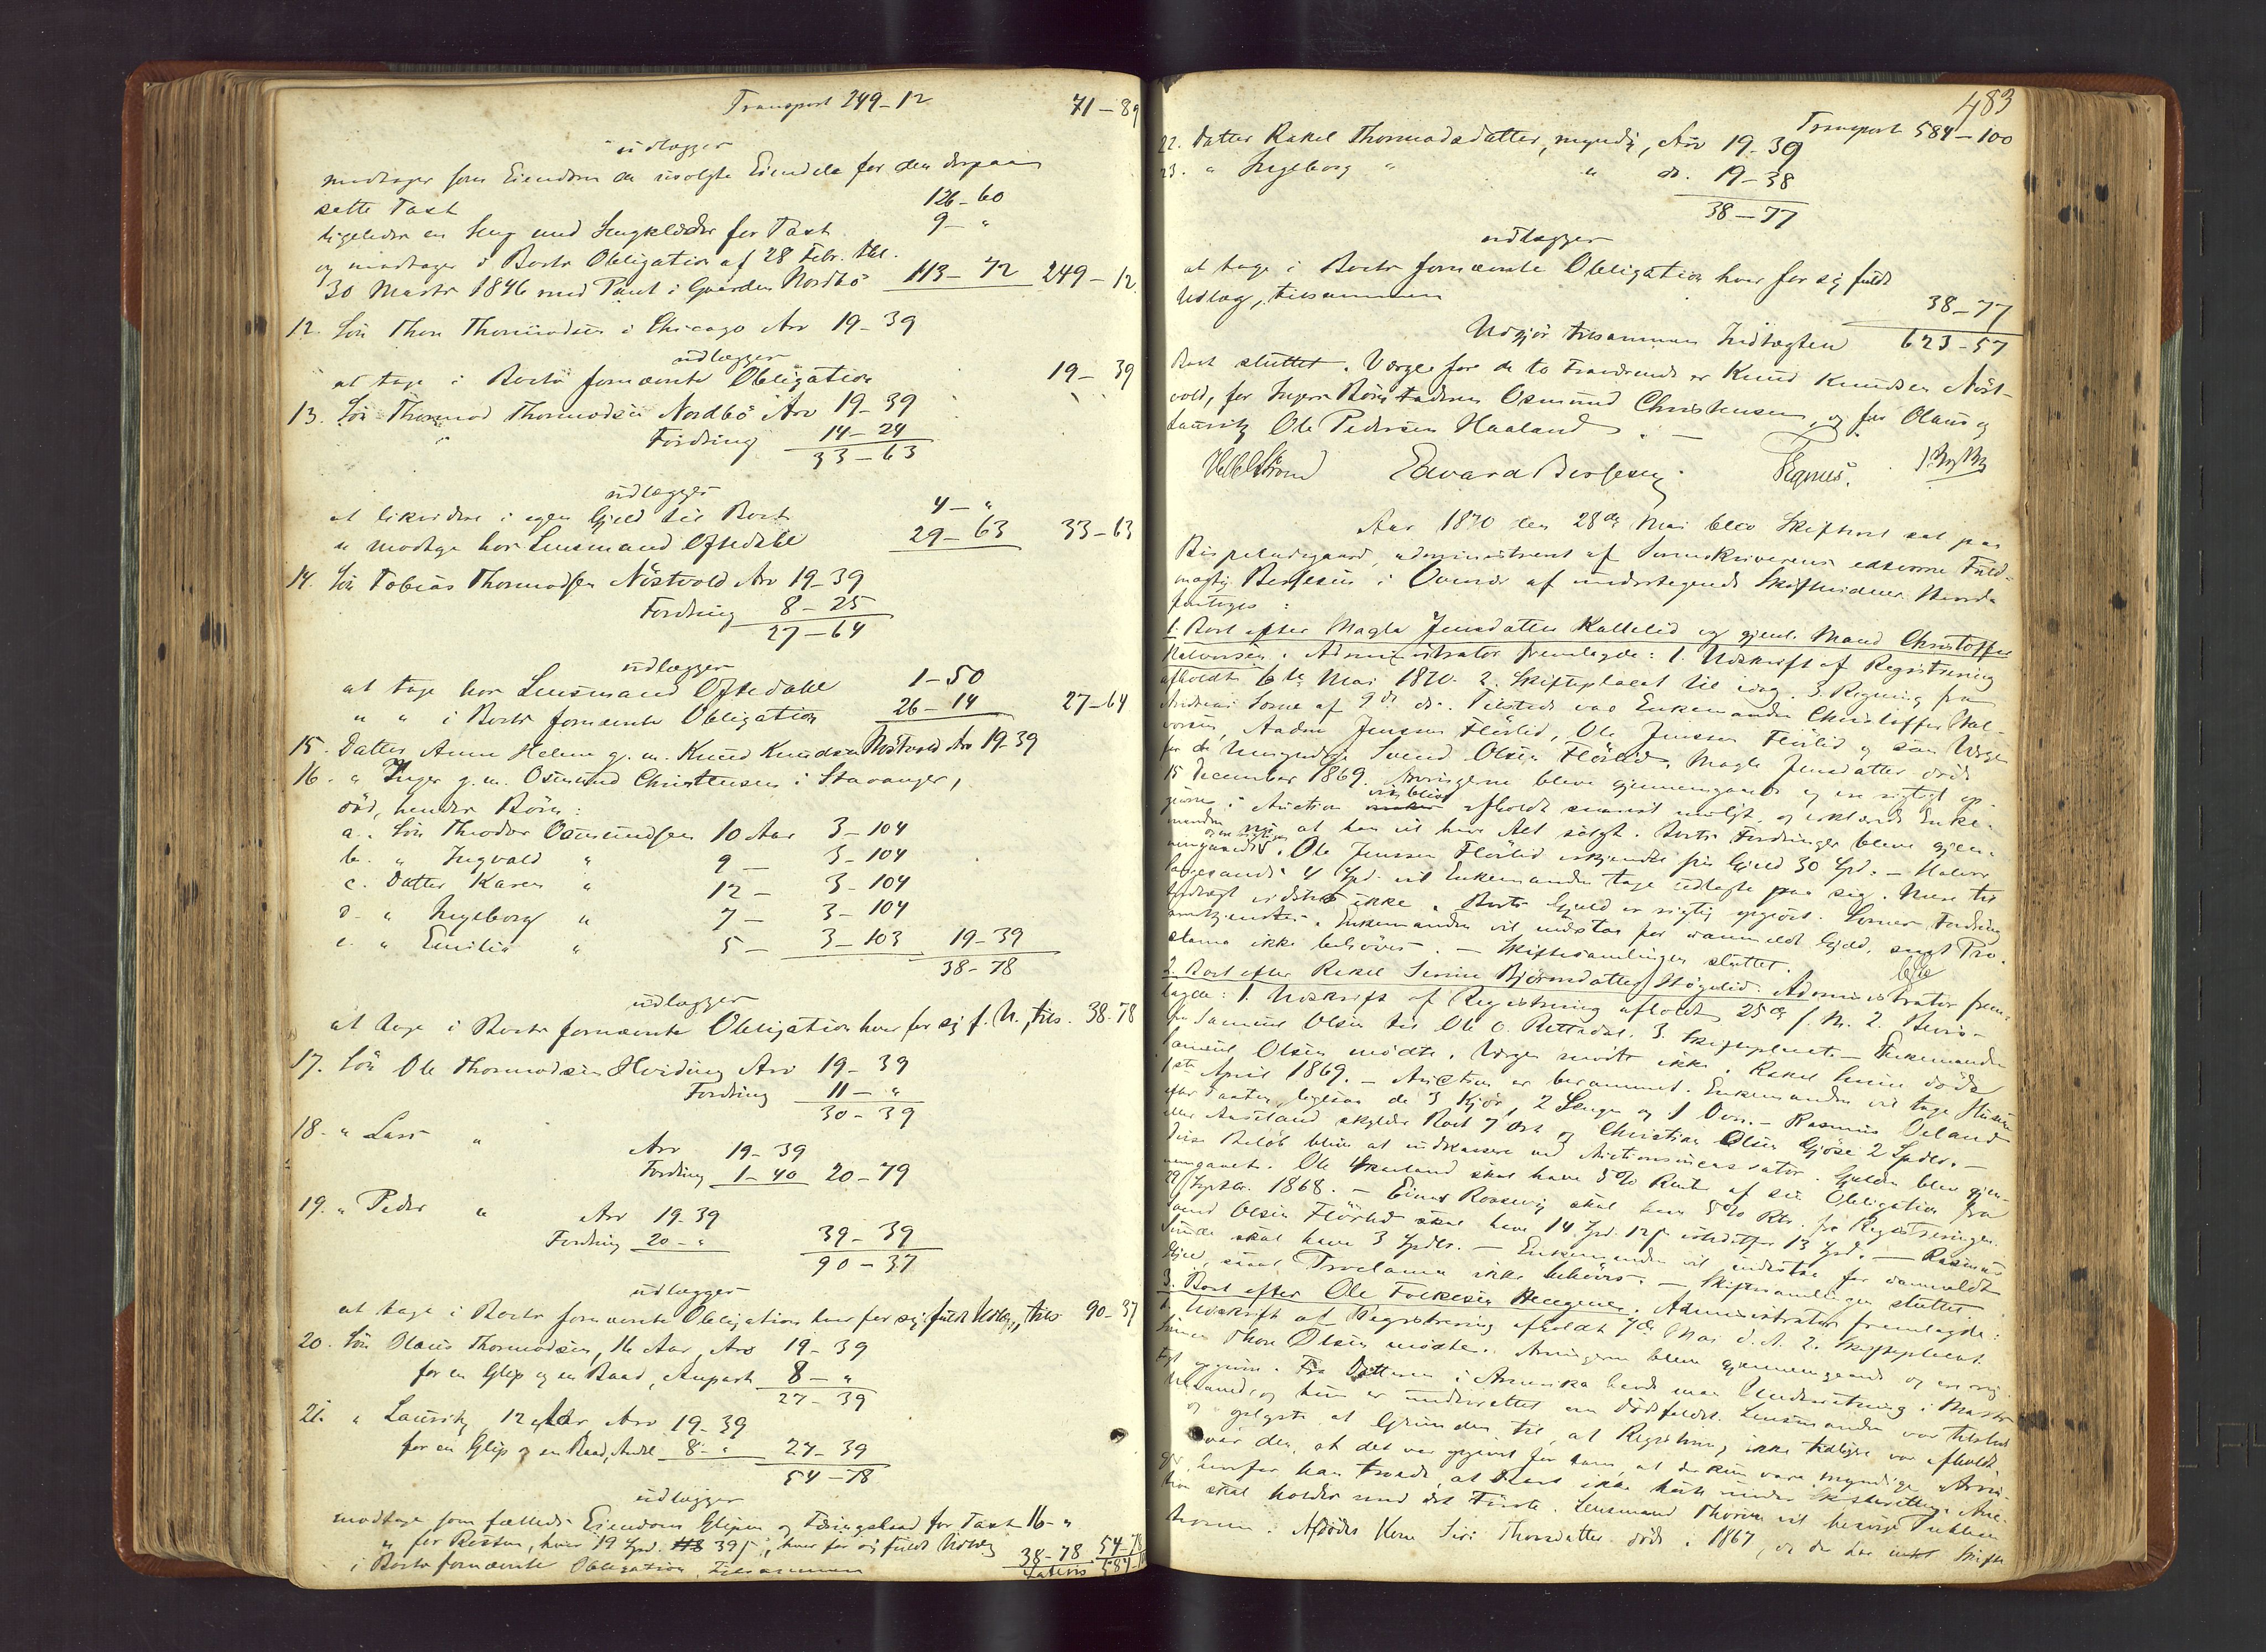 Transport 249-12 71-89
udlægges
modtager som Eiendom de usolgte Eiendele for den derpaa
satte Taxt 126-60
ligeledes en Seng med Sengklæder for Taxt 9-"
og modtager i Boets Obligation af 28 Febr. thl.
30 Marts 1846 med Pant i Gaarden Nordbö 113-72 249-12
12. Sön Thore Thormodsen i Chicago Arv 19-39
udlægges
at tage i Boets fornævnte Obligation 19-39
13. Sön Thormod Thormodsen Nordbö Arv 19-39
Fordring 14-24
33-63
udlægges
at likvidere i egen Gjeld til Boet 4-"
" modtage hos Lensmand Oftedahl 29-63 33-63
14. Sön Tobias Thormodsen Nöstvold Arv 19-39
Fordring 8-25
27-64
udlægges
at tage hos Lensmand Oftedahl 1-50
" " i Boets fornævnte Obligation 26-14 27-64
15. Datter Anne Helene g. m. Knud Knudsen Nöstvold Arv 19-39
16. " Inger g. m. Osmund Christensen i Stavanger,
död, hendes Börn:
a. Sön Theodor Osmundsen 10 Aar 3-104
b. " Ingvald " 9 - 3-104
c. Datter Karen " 12 - 3-104
d. " Ingeborg " 7 - 3-104
e. " Emilie " 5 - 3-103 19-39
38-78
udlægges
at tage i Boets fornævnte Obligation hver for sig f. U., tils. 38-78
17. Sön Ole Thormodsen Hviding Arv 19-39
Fordring 11-"
30-39
18. " Lars "
Arv 19-39
Fordring 1-40 20-79
19. " Peder " Arv 19-39
Fordring 20-" 39-39
90-37
udlægges
at tage i Boets fornævnte Obligation hver for sig fuldt Udlæg, tils 90-37
20. Sön Olaus Thormodsen, 16 Aar, Arv 19-39
for en Glip og en Baad, Anpart 8-"
27-39
21. " Lauritz 12 Aar Arv 19-39
for en Glip og en Baad, Andel 8-" 27-39
54-78
udlægges
modtage som fælleds Eiendom Glipen og Færingsbaad for Taxt 16-"
" for Resten, hver 19 Spd. 39 s, hver for sig fuldt Udlæg
i Boets fornævnte Obligation, tilsammen 38-78 54-78
Lateris 584-100
483
Transport 584-100
22. Datter Rakel Thormodsdatter, myndig, Arv 19-39
23. " Ingeborg " " do. 19-38
38-77
udlægges
at tage i Boets fornævnte Obligation hver for sig fuldt
Udlæg, tilsammen 38-77
Udgjör tilsammen Indtægten 623-57
Boet sluttet. Værge for de to Fraværende er Knud Knudsen Nöst-
vold, for Ingers Börn Faderen Osmund Christensen, og for Olaus og
Lauritz Ole Pedersen Haaland. -
Edvard Berfesen
Aar 1870 den 28de Mai blev Skifteret sat paa
Bispeladegaard, administreret af Sorenskriverens edsvorne Fuld-
mægtig Berfesen i Overvær af undertegnede Skiftevidner. Hvorda
foretoges:
1. Boet efter Magla Jensdatter Kallelid og gjenl. Mand Christoffer
Halvorsen. Administrator fremlagde: 1. Udskrift af Registrering
afholdt 6te Mai 1870. 2. Skifteplacat til idag. 3. Regning fra
Andreas Somme af 9de ds. Tilstede var Enkemanden Christoffer Hal-
vorsen, Aadne Jensen Flörlid, Ole Jensen Flörlid og som Værge
for de Umyndige Svend Olsen Flörlid. Magla Jensdatter döde
15 December 1869. Arvingerne bleve gjennemgaaede og ere rigtigt op-
givne. Auction vil blive afholdt snarest muligt, og erklærede Enke-
manden at han vil have Alt solgt. Boets Fordringer bleve gjen-
nemgaaede. Ole Jensen Flörlid erkjendte sin Gjeld 30 Spd. - Halvor
4 Spd. vil Enkemanden tage udlagte paa sig. Mere til
Indtægt vidstes ikke. Boets Gjeld er rigtig opgivet. Sommes Fordring
anerkjendtes. Enkemanden vil indestaa for uanmeldt Gjeld, saa at Pro-
clama ikke behöves. - Skiftesamlingen sluttet.
2. Boet efter Rakel Serine Björnsdatter Högelid. Administrator frem-
lagde: 1. Udskrift af Registrering afholdt 25de f. M. 2. Bevis
fra Samuel Olsen til Ole O. Rettedal. 3. Skifteplacat. - Enkemanden
Samuel Olsen mödte. Værgen mödte ikke. Rakel Serine döde
1ste April 1869. - Auction er berammet. Enkemanden vil tage Husene
efter Taxten, ligesaa de 3 Kjör, 2 Senge og 1 Ovn. - Rasmus Veland
eller Aaseland skylder Boet 7 Ort og Christian Olsen Gjöse 2 Spdlr. -
Disse Belöb blive at indkassere ved Auctionsincassator. Gjelden blev gjen-
nemgaaet. Ole skal have 5% Rente af sin Obligation fra
29 Septbr. 1868. - Einar Rossevig skal have 5% Rte. fra Registreringen.
Svend Olsen Flörlid skal have 14 Spd. 12 s istedetfor 13 Spd. - Rasmus
skal have 3 Spdlr. - Enkemanden vil indestaa for uanmeldt
Gjeld, saa at Proclama ikke behöves. - Skiftesamlingen sluttet.
3. Boet efter Ole Folkesen Helegene. Administrator fremlagde:
1. Udskrift af Registrering afholdt 7de Mai d. A. 2. Skifteplacat.
Sönnen Thore Olsen mödte. Arvingerne bleve gjennemgaaede og ere rig-
tigt opgivne. Fra Datteren i Amerika havde man Underretning i Marts
Maaned, og hun er underrettet om Dödsfaldet. Lensmanden var tilstede
og oplyste, at Grunden til, at Registrering ikke tidligere var afholdt
var den, at det var opgivet for ham, at der kun vare myndige Arvin-
ger, hvorfor han troede, at Boet ikke hörte under Skifteretten. Auc-
tion skal holdes med det Förste. Lensmand Thorsen vil besörge Publica-
tionen. Afdödes Kone Siri Thoresdatter döde i 1867, og der har intet Skifte